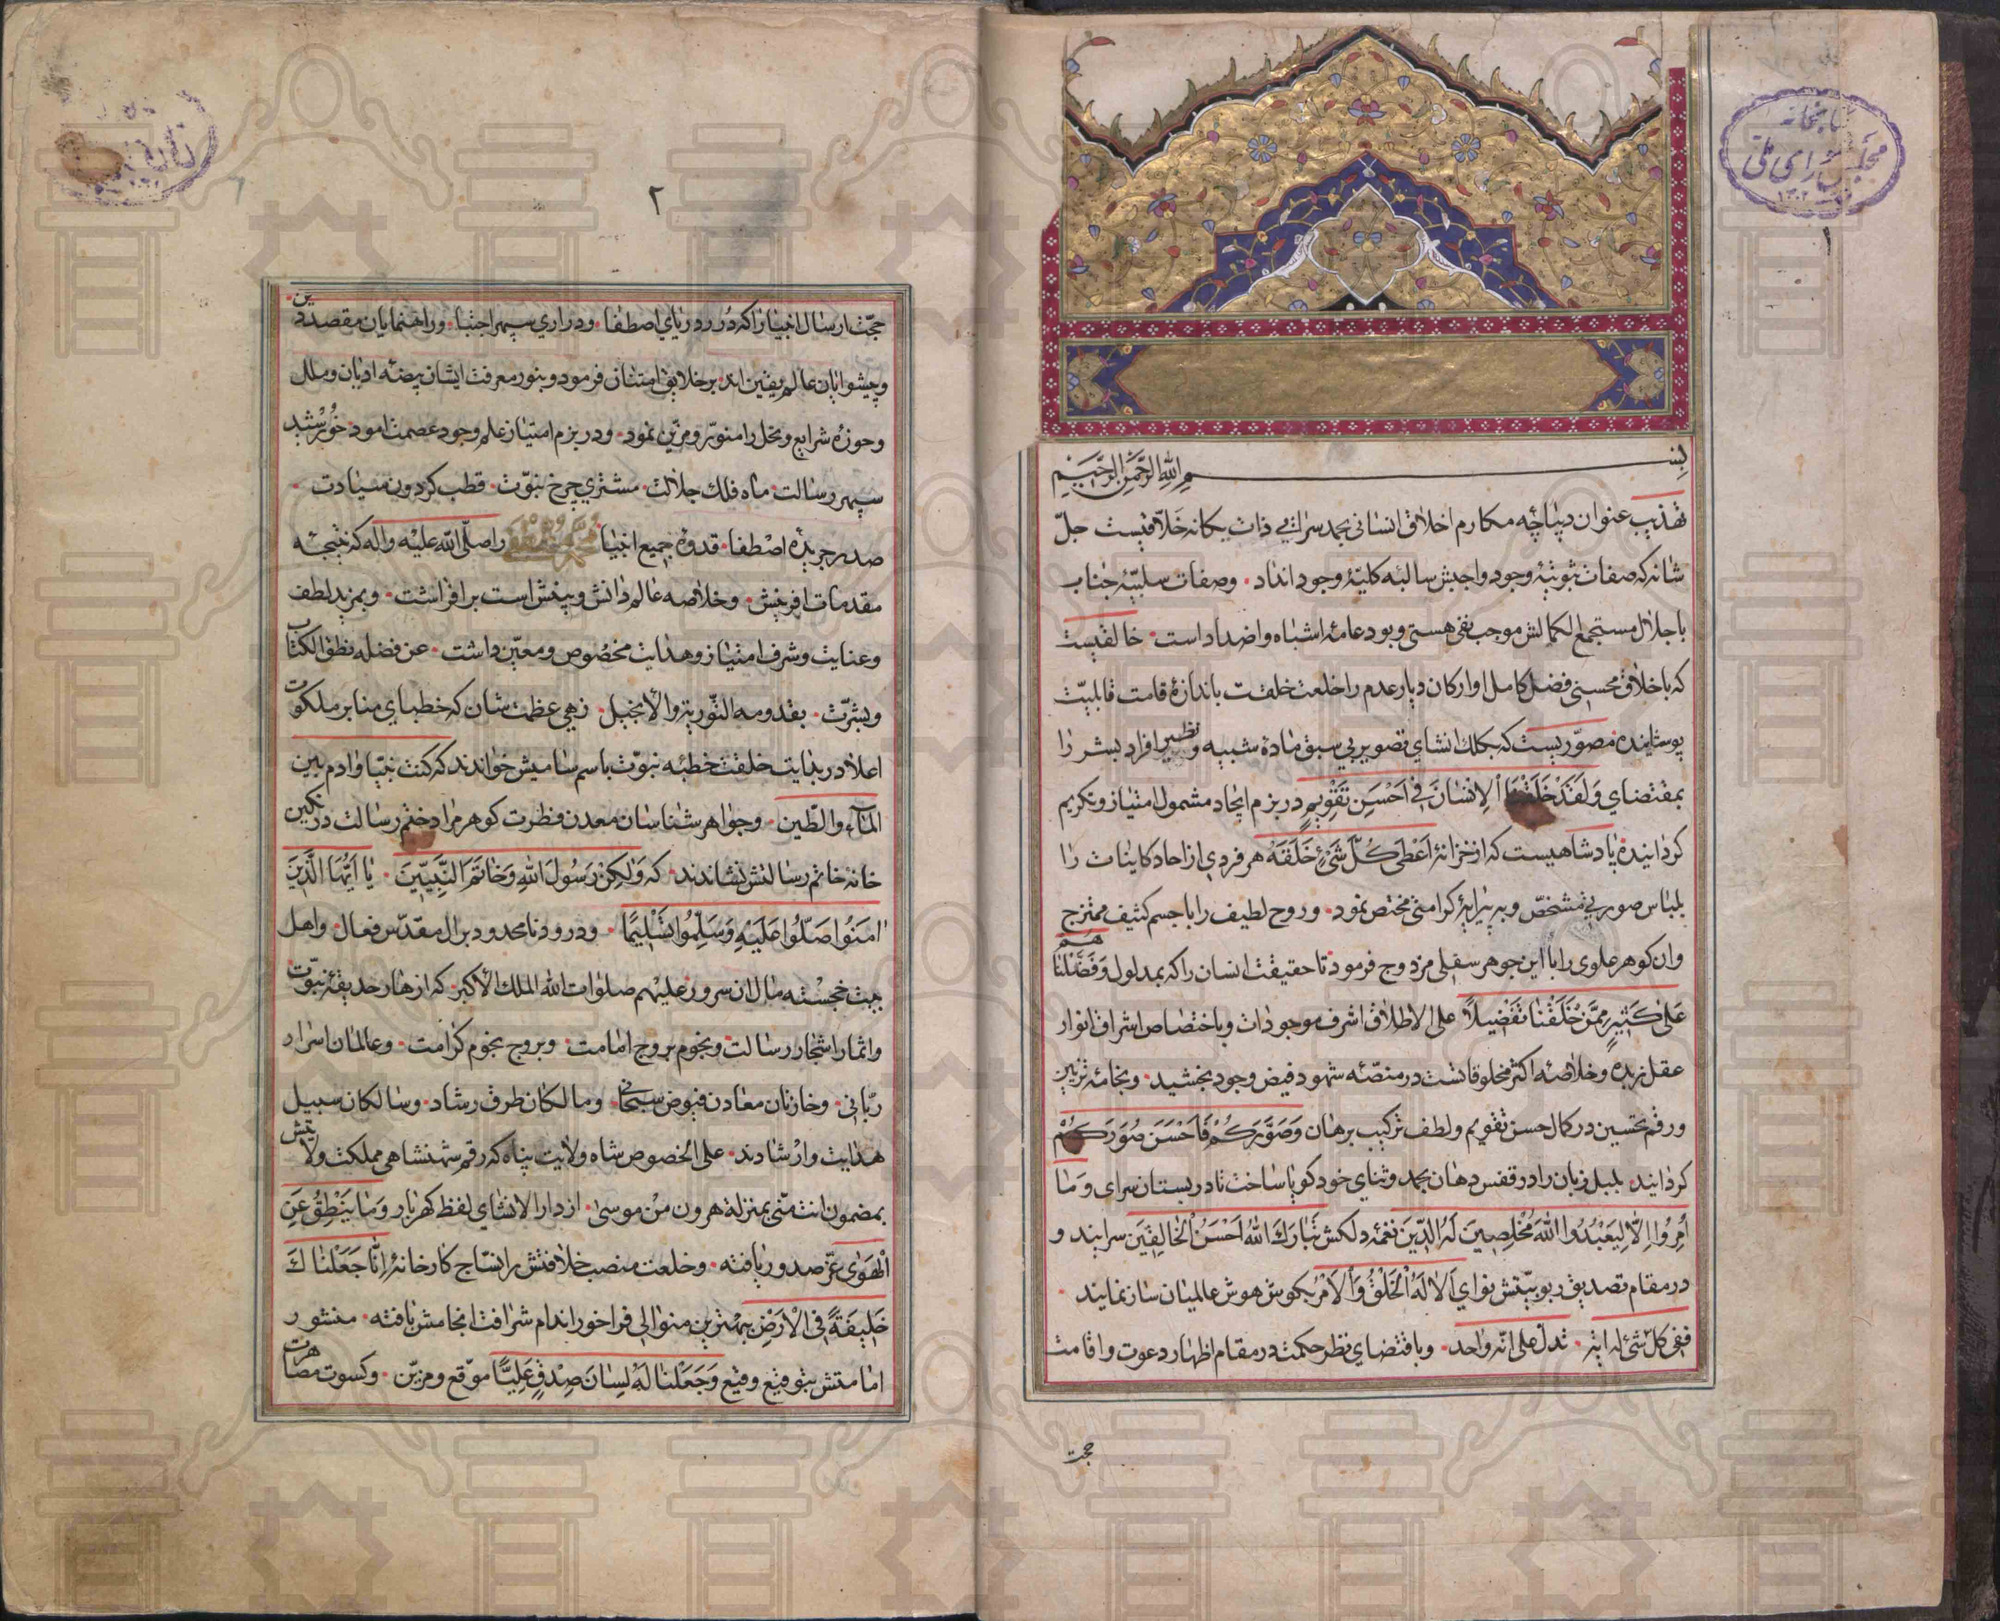 کتابخانه
مجلس شورای ملی
بسم الله الرحمن الرحیم
تهذیب عنوان دیباچه مکارم اخلاق انسانی بحمد سرائی ذات یکانه خلاقیست جلّ
شانه که صفات ثبوتیهٔ وجود واجبش سالبهٔ کلیّهٔ وجود انداد ۰ وصفات سلبیّهٔ جناب
با جلال مستجمع الکمالش موجب نفی هستی و بود عامهٔ اشباه و اضداد است ۰ خالقیست
که باخلاق محسنی فضل کامل اوارکان دیار عدم را خلعت خلقت باندازهٔ قامت قابلیّت
پوشاینده مصوّریست که بکلك انشای تصویر بی سبق مادهٔ شبیه و نظیر افراد بشر را
بمقتضای وَلَقَدْ خَلَقْنَا الْاِنْسَانَ فی اَحْسَنِ تَقْوِیمٍ در بزم ایجاد مشمول امتیاز و تکریم
کردانیده پادشاهیست که از خزانهٔ اَعْطٰی کُلَّ شَیْءٍ خَلَقَهُ هر فردی از احاد کاینات را
بلباس صوری مشخّص و به پیرایهٔ کرامتی مختص نمود ۰ و روح لطیف را با جسم کثیف ممتزج
وان کوهر علوی را با این جوهر سفلی مزدوج فرمود تا حقیقت انسان را که بمدلول وَفَضَّلْنَاهُمْ
عَلٰی کَثِیرٍ مِمَّنْ خَلَقْنَا تَفْضِیلاً علی الاطلاق اشرف موجودات و باختصاص اشراق انوار
عقل زبده و خلاصه اکثر مخلوقاتست در منصّه شهود فیض وجود بخشید ۰ و بخامهٔ تزیین
و رقم تحسین در کمال حسن تقویم و لطف ترکیب برهان وَصَوَّرَکُمْ فَاَحْسَنَ صُوَرَکُمْ
کردانید ۰ بلبل زبان را در قفس دهان بحمد و ثنای خود کویا ساخت تا در بستان سرای وَمَا
اُمِرُوا اِلَّا لِیَعْبُدُوا اللهَ مُخْلِصِینَ لَهُ الدِّینَ نغمهٔ دلکش تَبَارَكَ اللهُ اَحْسَنُ الْخَالِقِینَ سرایند و
در مقام تصدیق ربوبیّتش نوای اَلَا لَهُ الْخَلْقُ وَالْاَمْرُ بکوش هوش عالمیان ساز نمایند ۰
ففی کل شیٔ له ایة ۰ تدل علی انّه واحد ۰ و باقتضای نظر حکمت در مقام اظهار دعوت و اقامت
حجت
۲
حجّت ارسال انبیا را که درر دریای اصطفا ۰ و دراری سپهر اجتبا ۰ و راهنمایان مقصد دین
و پیشوایان عالم یقین اند بر خلایق امتنان فرمود و بنور معرفت ایشان بیضهٔ ادیان و ملل
و حوزهٔ شرایع و نحل را منوّر و مزیّن نمود ۰ و در بزم امتیاز علم وجود عصمت امود خورشید
سپهر رسالت ۰ ماه فلك جلالت ۰ مشتری چرخ نبوّت ۰ قطب کردون سیادت ۰
صدر جریدهٔ اصطفا ۰ قدوهٔ جمیع انبیا محمد مصطفی را صلّی الله علیه واله که نتیجه
مقدمات افرینش ۰ و خلاصه عالم دانش و بینش است برافراشت ۰ و بمزید لطف
و عنایت و شرف امتیاز و هدایت مخصوص و معیّن داشت ۰ عن فضله نطق الکتاب
وبشرّت ۰ بقدومه التّوریة والانجیل ۰ زهی عظمت شان که خطبای منابر ملکوت
اعلا در بدایت خلقت خطبه نبوّت باسم سامیش خواندند که کنت نبیّا وادم بین
المآء والطّین ۰ و جواهر شناسان معدن فطرت کوهر مراد ختم رسالت در نکین
خانه خاتم رسالتش نشاندند ۰ که وَلٰکِنْ رَسُولَ اللهِ وَخَاتَمَ النَّبِیِّینَ ۰ یٰا اَیُّهَا الَّذِینَ
اٰمَنُوا صَلُّوا عَلَیْهِ وَسَلِّمُوا تَسْلِیمًا ۰ و درود نامحدود بر ال مقدّس فعال ۰ واهل
بیت خجسته مال ان سرور علیهم صلوات الله الملك الاکبر ۰ که ازهار حدیقهٔ نبوّت
واثمار اشجار رسالت و نجوم بروج امامت ۰ و بروج نجوم کرامت ۰ و عالمان اسرار
ربّانی ۰ و خازنان معادن فیوض سبحانی و مالکان طرق رشاد ۰ و سالکان سبیل
هدایت و ارشادند ۰ علی الخصوص شاه ولایت پناه که رقم شهنشاهی مملکت ولایتش
بمضمون انت منّی بمنزلة هرون من موسیٰ ۰ از دار الانشای لفظ کهربار وَمَا یَنْطِقُ عَنِ
الْهَوٰی عزّ صدور یافته ۰ و خلعت منصب خلافتش را نسّاج کارخانهٔ اِنَّا جَعَلْنَاكَ
خَلِیفَةً فِی الْاَرْضِ بهترین منوالی فراخور اندام شرافت انجامش بافته ۰ منشور
امامتش بتوقیع وقیع وَجَعَلْنَا لَهُ لِسَانَ صِدْقٍ عَلِیًّا موقّع و مزیّن ۰ و کسوت مصاهرت